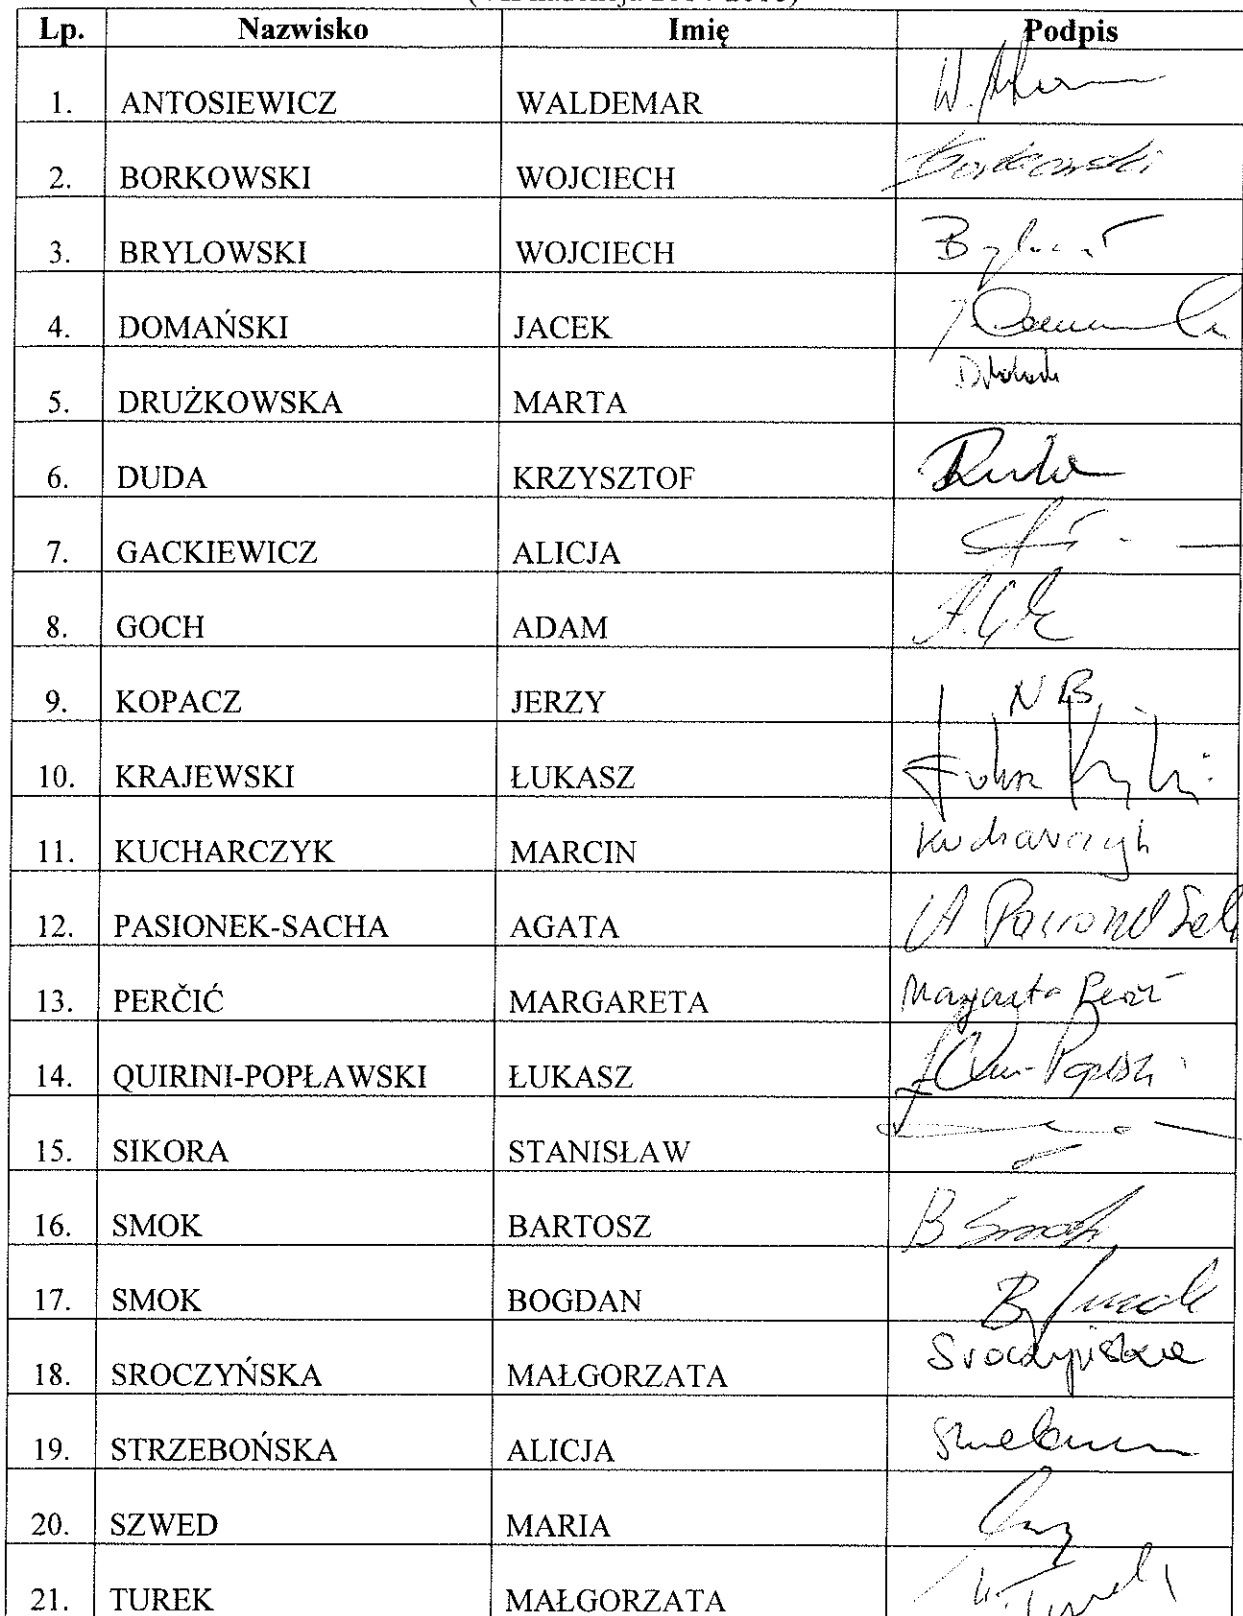 Lp. Nazwisko Imię Podpis
1. ANTOSIEWICZ WALDEMAR W.
2. BORKOWSKI WOJCIECH Borkowski
3. BRYLOWSKI WOJCIECH
4. DOMAŃSKI JACEK
5. DRUŻKOWSKA MARTA
6. DUDA KRZYSZTOF Duda
7. GACKIEWICZ ALICJA
8. GOCH ADAM
9. KOPACZ JERZY N B
10. KRAJEWSKI ŁUKASZ
11. KUCHARCZYK MARCIN Kucharczyk
12. PASIONEK-SACHA AGATA
13. PERČIĆ MARGARETA Margareta
14. QUIRINI-POPŁAWSKI ŁUKASZ
15. SIKORA STANISŁAW
16. SMOK BARTOSZ B Smok
17. SMOK BOGDAN B Smok
18. SROCZYŃSKA MAŁGORZATA Sroczyńska
19. STRZEBOŃSKA ALICJA
20. SZWED MARIA
21. TUREK MAŁGORZATA